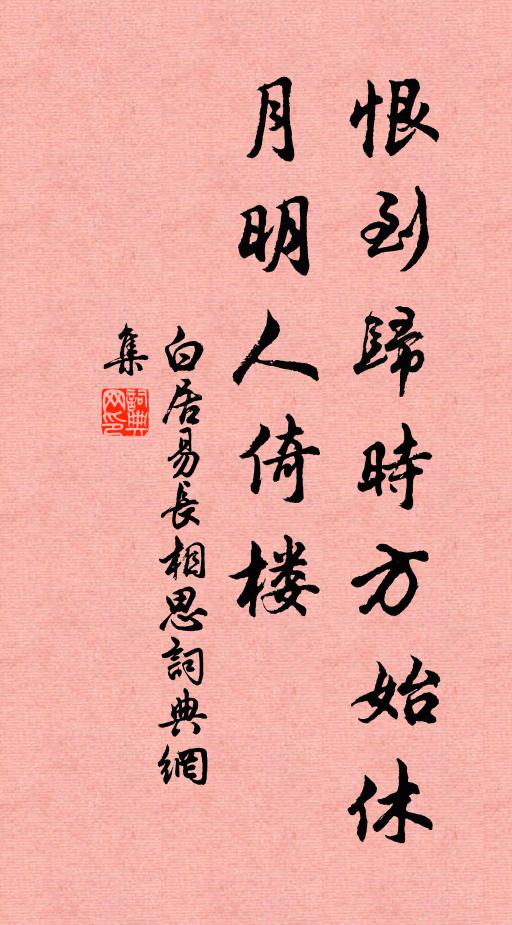 恨到歸時方始休
月明人倚楼
白居易長相思詞典網
集
詞典网印